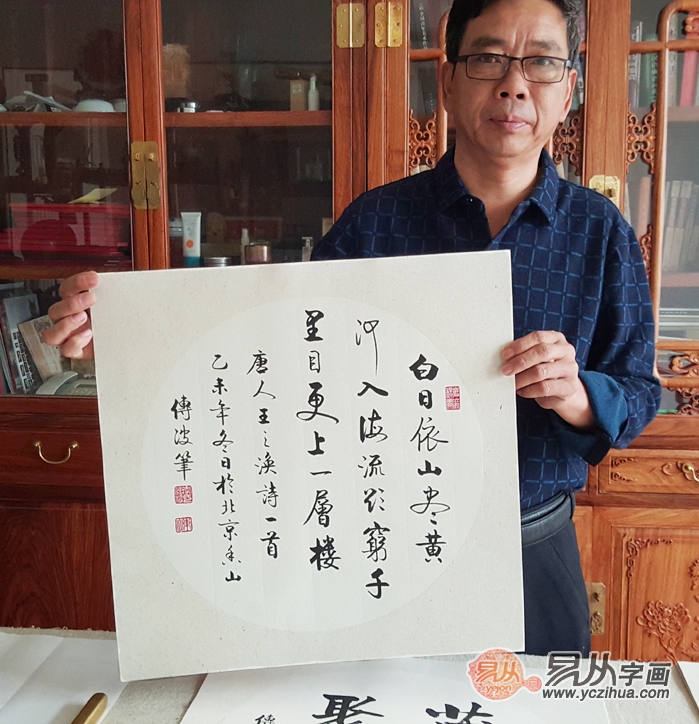 白日依山尽黄
河入海流欲窮千
里目更上一層楼
唐人王之渙詩一首
乙未年冬日於北京香山
傳波筆
聚
易从
易从字画
www.yczihua.com